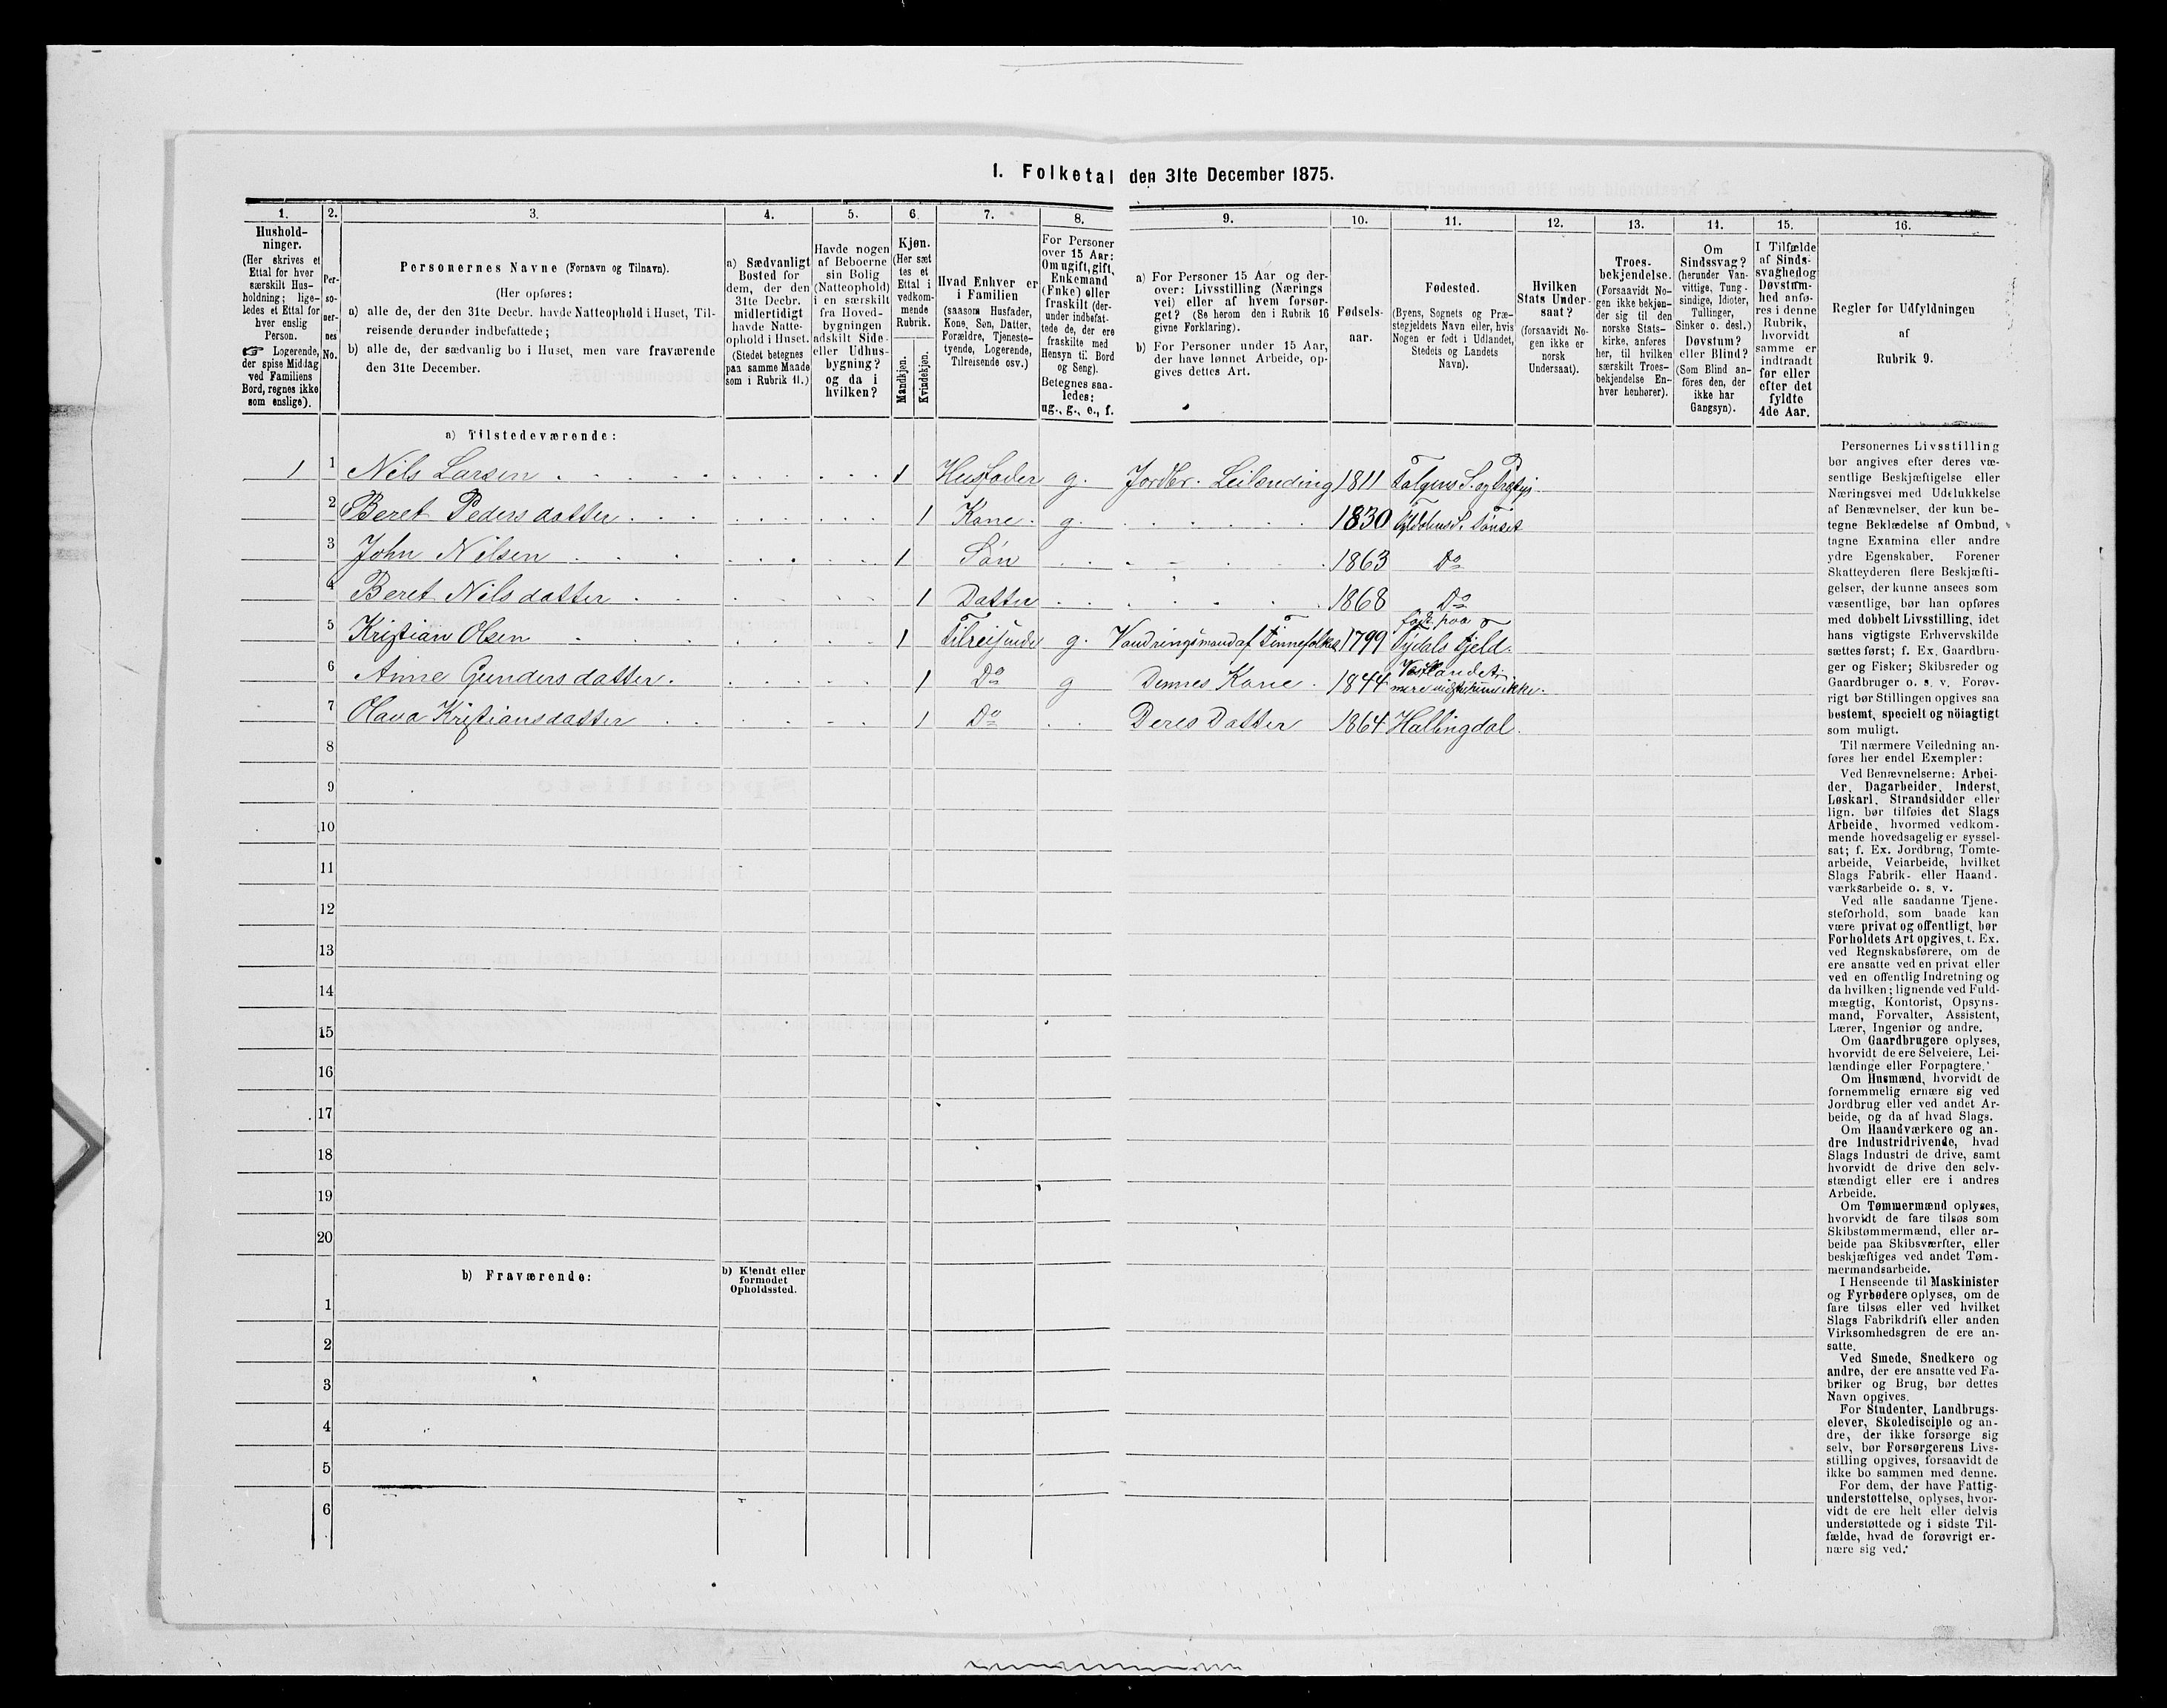 1. Folketal den 31te December 1875.
1.
2.
3.
4.
5.
6.
7.
8.
9.
10.
11.
12.
13.
14.
15.
16.
Hushold-
ninger.
(Her skrives et
Ettal for hver
særskilt Hus-
holdning; lige-
ledes et Ettal for
hver enslig
Person.
☞ Logerende,
der spise Middag
ved Familiens
Bord, regnes ikke
som enslige).
Per-
so-
ner-
nes
No.
Personernes Navne (Fornavn og Tilnavn).
(Her opføres:
a) alle de, der den 31te Decbr. havde Natteophold i Huset, Til-
reisende derunder indbefattede;
b) alle de, der sædvanlig bo i Huset, men vare fraværende
den 31te December.
a) Sædvanligt
Bosted for
dem, der den
31te Decbr.
midlertidigt
havde Natte-
ophold i Huset.
(Stedet betegnes
paa samme Maade
som i Rubrik 11.)
Havde nogen
af Beboerne
sin Bolig
(Natteophold)
i en særskilt
fra Hoved-
bygningen
adskilt Side-
eller Udhus-
bygning?
og da i
hvilken?
Kjøn.
(Her sæt
tes et
Ettal i
vedkom-
mende
Rubrik.
Mandkjøn.
Kvindekjøn.
Hvad Enhver er
i Familien
(saasom Husfader,
Kone, Søn, Datter,
Forældre, Tjeneste-
tyende, Logerende,
Tilreisende osv.)
For Personer
over 15 Aar:
Om ugift, gift,
Enkemand
(Enke) eller
fraskilt (der-
under indbefat-
tede de, der ere
fraskilte med
Hensyn til Bord
og Seng).
Betegnes saa-
ledes:
ug., g., e., f.
a) For Personer 15 Aar og der-
over: Livsstilling (Nærings
vei) eller af hvem forsør-
get? (Se herom den i Rubrik 16
givne Forklaring).
b) For Personer under 15 Aar,
der have lønnet Arbeide, op-
gives dettes Art.
Fødsels-
aar.
Fødested.
(Byens, Sognets og Præ-
stegjeldets Navn eller, hvis
Nogen er født i Udlandet,
Stedets og Landets
Navn).
Hvilken
Stats Under-
saat?
(forsaavidt No-
gen ikke er
norsk
Undersaat).
Troes-
bekjendelse.
(Forsaavidt No-
gen ikke bekjen-
der sig til den
norske Stats-
kirke, anføres
her, til hvilken
særskilt Troes-
bekjendelse En-
hver henhører).
Om
Sindssvag?
(herunder Van-
vittige, Tung-
sindige, Idioter,
Tullinger,
Sinker o. desl.)
Døvstum?
eller Blind?
(Som Blind an-
føres den, der
ikke har
Gangsyn).
I Tilfælde
af Sinds-
svaghed og
Døvstum-
hed anfø-
res i denne
Rubrik,
hvorvidt
samme er
indtraadt
før eller
efter det
fyldte
4de Aar.
Regler for Udfyldningen
af
Rubrik 9.
a) Tilstedeværende:
1 1 Nils Larsen 1 Husfader g. Jordbr. Leilending 1811
2 Beret Pedersdatter 1 Kone g. 1830 Tönset
3 John Nilsen 1 Sön 1863 Do
4 Beret Nilsdatter 1 Datter 1868 Do
5 Kristian Olsen 1 Tilreisende g. Vandringsmand af Finnefolket 1799 født paa Tydals Fjeld.
6 Anne Gundersdatter 1 Do g Dennes Kone 1844 Vestlandet
7 Olava Kristiansdatter 1 Do Deres Datter 1864 Hallingdal.
8
9
10
11
12
13
14
15
16
17
18
19
20
b) Fraværende:
b) Kjendt eller
formodet
Opholdssted.
1
2
3
4
5
6
Personernes Livsstilling
bør angives efter deres væ-
sentlige Beskjæftigelse eller
Næringsvei med Udelukkelse
af Benævnelser, der kun be-
tegne Beklædelse af Ombud,
tagne Examina eller andre
ydre Egenskaber. Forener
Skatteyderen flere Beskjæfti-
gelser, der kunne ansees som
væsentlige, bør han opføres
med dobbelt Livsstilling, idet
hans vigtigste Erhvervskilde
sættes først; f. Ex. Gaardbru-
ger og Fisker; Skibsreder og
Gaardbruger o. s. v. Forøv-
rigt bør Stillingen opgives saa
bestemt, specielt og nöiagtigt
som muligt.
Til nærmere Veiledning an-
føres her endel Exempler:
Ved Benævnelserne: Arbei-
der, Dagarbeider, Inderst,
Løskarl, Strandsidder eller
lign. bør tilføies det Slags
Arbeide, hvormed vedkom-
mende hovedsagelig er syssel-
sat; f. Ex. Jordbrug, Tomte-
arbeide, Veiarbeide, hvilket
Slags Fabrik- eller Haand-
værksarbeide o. s. v.
Ved alle saadanne Tjene-
steforhold, som baade kan
være privat og offentligt, bør
Forholdets Art opgives, t. Ex.
ved Regnskabsførere, om de
ere ansatte ved en privat eller
ved en offentlig Indretning og
da hvilken; lignende ved Fuld-
mægtig, Kontorist, Opsyns-
mand, Forvalter, Assistent,
Lærer, Ingeniør og andre.
Om Gaardbrugere oplyses,
hvorvidt de ere Selveiere, Lei-
lændinge eller Forpagtere.
Om Husmænd, hvorvidt de
fornemmelig ernære sig ved
Jordbrug eller ved andet Ar-
beide, og da af hvad Slags.
Om Haandværkere og an-
dre Industridrivende, hvad
Slags Industri de drive, samt
hvorvidt de drive den selv-
stændigt eller ere i andres
Arbeide.
Om Tømmermænd oplyses,
hvorvidt de fare tilsøs som
Skibstømmermænd, eller ar-
beide paa Skibsværfter, eller
beskjæftiges ved andet Tøm-
mermandsarbeide.
I Henseende til Maskinister
og Fyrbødere oplyses, om de
fare tilsøs eller ved hvilket
Slags Fabrikdrift eller anden
Virksomhedsgren de ere an-
satte.
Ved Smede, Snedkere og
andre, der ere ansatte ved Fa-
briker og Brug, bør dettes
Navn opgives.
For Studenter, Landbrugs-
elever, Skoledisciple og an-
dre, der ikke forsørge sig
selv, bør Forsørgerens Livs-
stilling opgives, forsaavidt de
ikke bo sammen med denne.
For dem, der have Fattig-
understøttelse, oplyses, hvor-
vidt de ere helt eller delvis
understøttede og i sidste Til-
fælde, hvad de forøvrigt er-
nære sig ved.